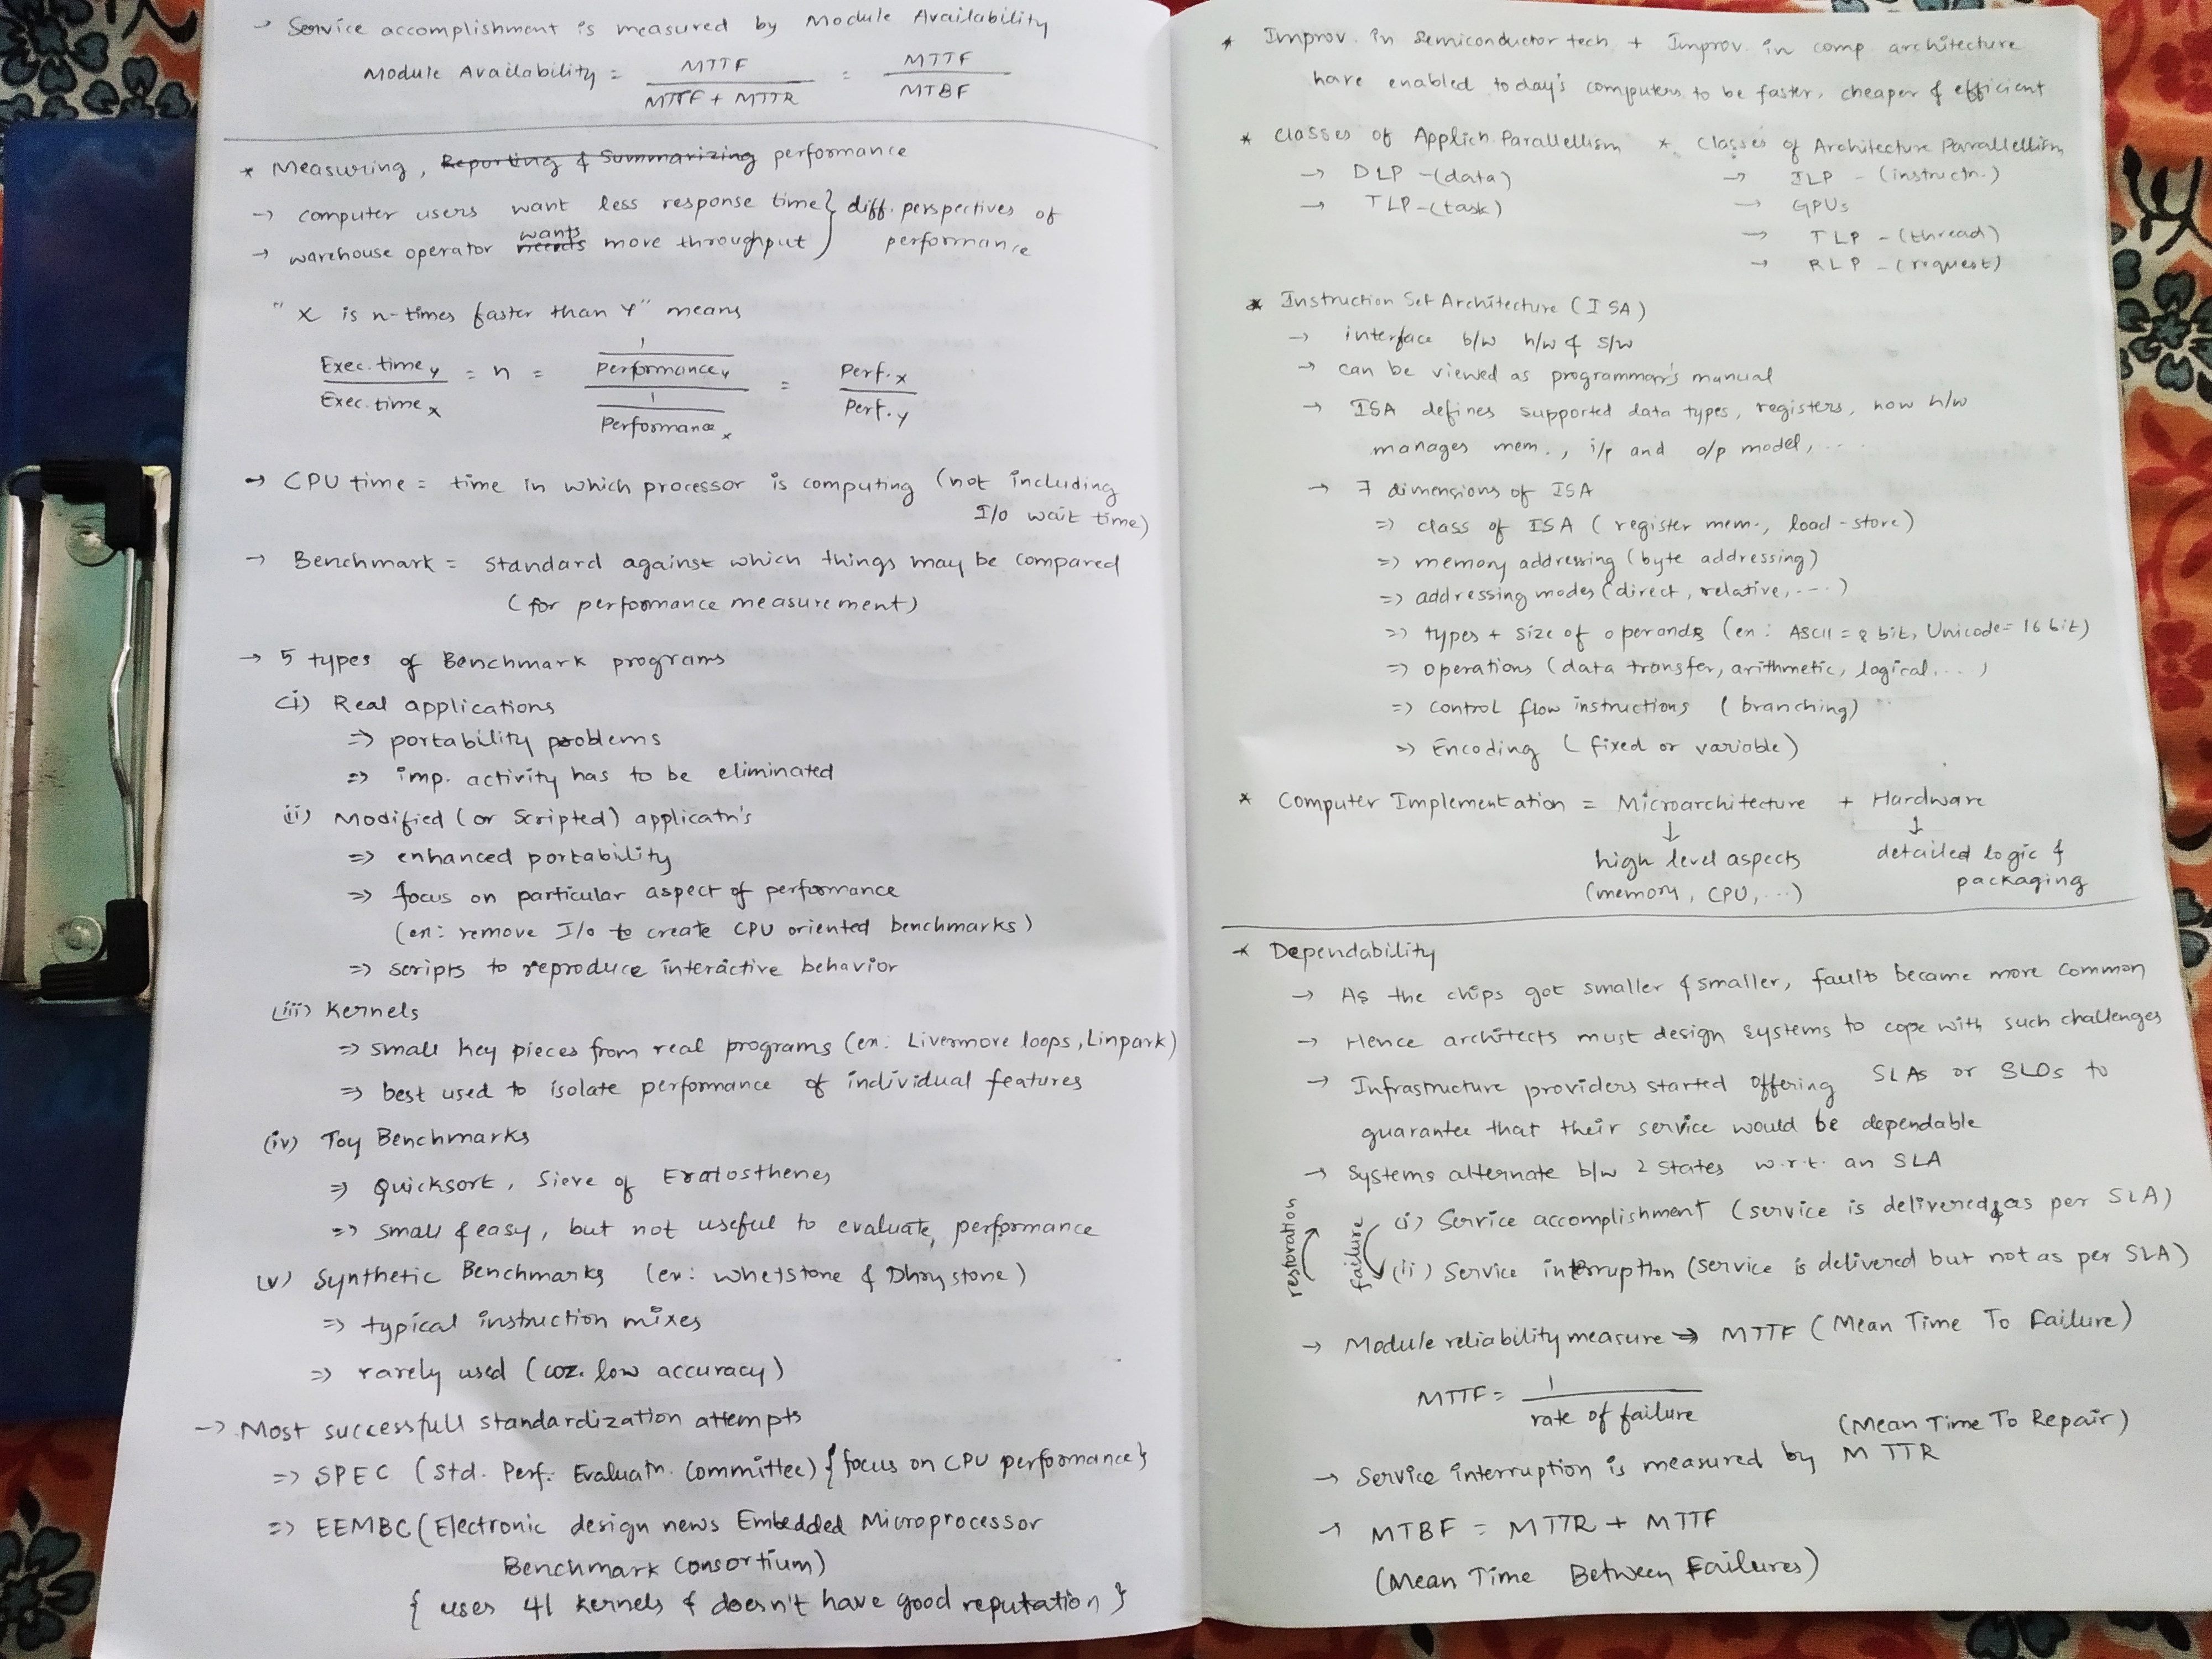 → Service accomplishment is measured by Module Availability
Module Availability = MTTF / MTTF + MTTR = MTTF / MTBF
* Measuring, Reporting & Summarizing performance
→ computer users want less response time } diff. perspectives of
→ warehouse operator needs wants more throughput } performance
"X is n-times faster than Y" means
Exec. time Y / Exec. time X = n = 1 / Performance Y / 1 / Performance X = Perf. X / Perf. Y
→ CPU time = time in which processor is computing (not including
I/O wait time)
→ Benchmark = standard against which things may be compared
(for performance measurement)
→ 5 types of Benchmark programs
(i) Real applications
=> portability problems
=> imp. activity has to be eliminated
(ii) Modified (or Scripted) applicatn's
=> enhanced portability
=> focus on particular aspect of performance
(ex: remove I/O to create CPU oriented benchmarks)
=> scripts to reproduce interactive behavior
(iii) Kernels
=> small key pieces from real programs (ex: Livermore loops, Linpark)
=> best used to isolate performance of individual features
(iv) Toy Benchmarks
=> Quicksort, Sieve of Eratosthenes
=> small & easy, but not useful to evaluate performance
(v) Synthetic Benchmarks (ex: Whetstone & Dhrystone)
=> typical instruction mixes
=> rarely used (coz. low accuracy)
→ Most successfull standardization attempts
=> SPEC (Std. Perf. Evaluatn. Committee) {focus on CPU performance}
=> EEMBC (Electronic design news Embedded Microprocessor
Benchmark Consortium)
{ uses 41 kernels & doesn't have good reputation }
* Improv. in semiconductor tech + Improv. in comp architecture
have enabled today's computers to be faster, cheaper & efficient
* Classes of Applicn Parallellism
→ DLP - (data)
→ TLP - (task)
* Classes of Architecture Parrallellism
→ ILP - (instructn.)
→ GPUs
→ TLP - (thread)
→ RLP - (request)
* Instruction Set Architecture (ISA)
→ interface b/w h/w & s/w
→ can be viewed as programmar's manual
→ ISA defines supported data types, registers, how h/w
manages mem., i/p and o/p model, ...
→ 7 dimensions of ISA
=> class of ISA (register mem., load-store)
=> memory addressing (byte addressing)
=> addressing modes (direct, relative, ....)
=> types + size of operands (ex: ASCII = 8 bit, Unicode = 16 bit)
=> operations (data transfer, arithmetic, logical....)
=> control flow instructions (branching)
=> Encoding (fixed or variable)
* Computer Implementation = Microarchitecture + Hardware
↓ ↓
high level aspects detailed logic &
(memory, CPU, ...) packaging
* Dependability
→ As the chips got smaller & smaller, faults became more common
→ Hence architects must design systems to cope with such challenges
→ Infrastructure providers started offering SLAs or SLOs to
guarantee that their service would be dependable
→ Systems alternate b/w 2 states w.r.t. an SLA
restoration
failure
(i) Service accomplishment (service is delivered as per SLA)
(ii) Service interruption (service is delivered but not as per SLA)
→ Module reliability measure → MTTF (Mean Time To Failure)
MTTF = 1 / rate of failure
(Mean Time To Repair)
→ Service interruption is measured by MTTR
→ MTBF = MTTR + MTTF
(Mean Time Between Failures)